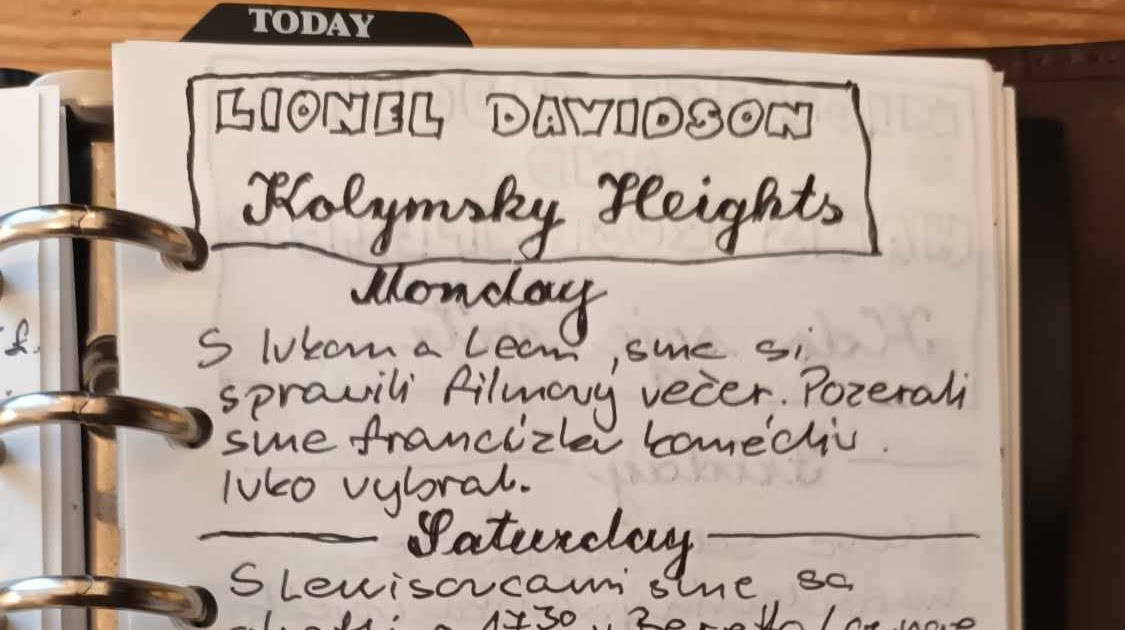 TODAY
LIONEL DAVIDSON
Kolymsky Heights
Monday
S Lukom a Leom, sme si
spravili filmový večer. Pozerali
sme francúzku komédiu.
Luko vybral.
Saturday
sme sa
1730